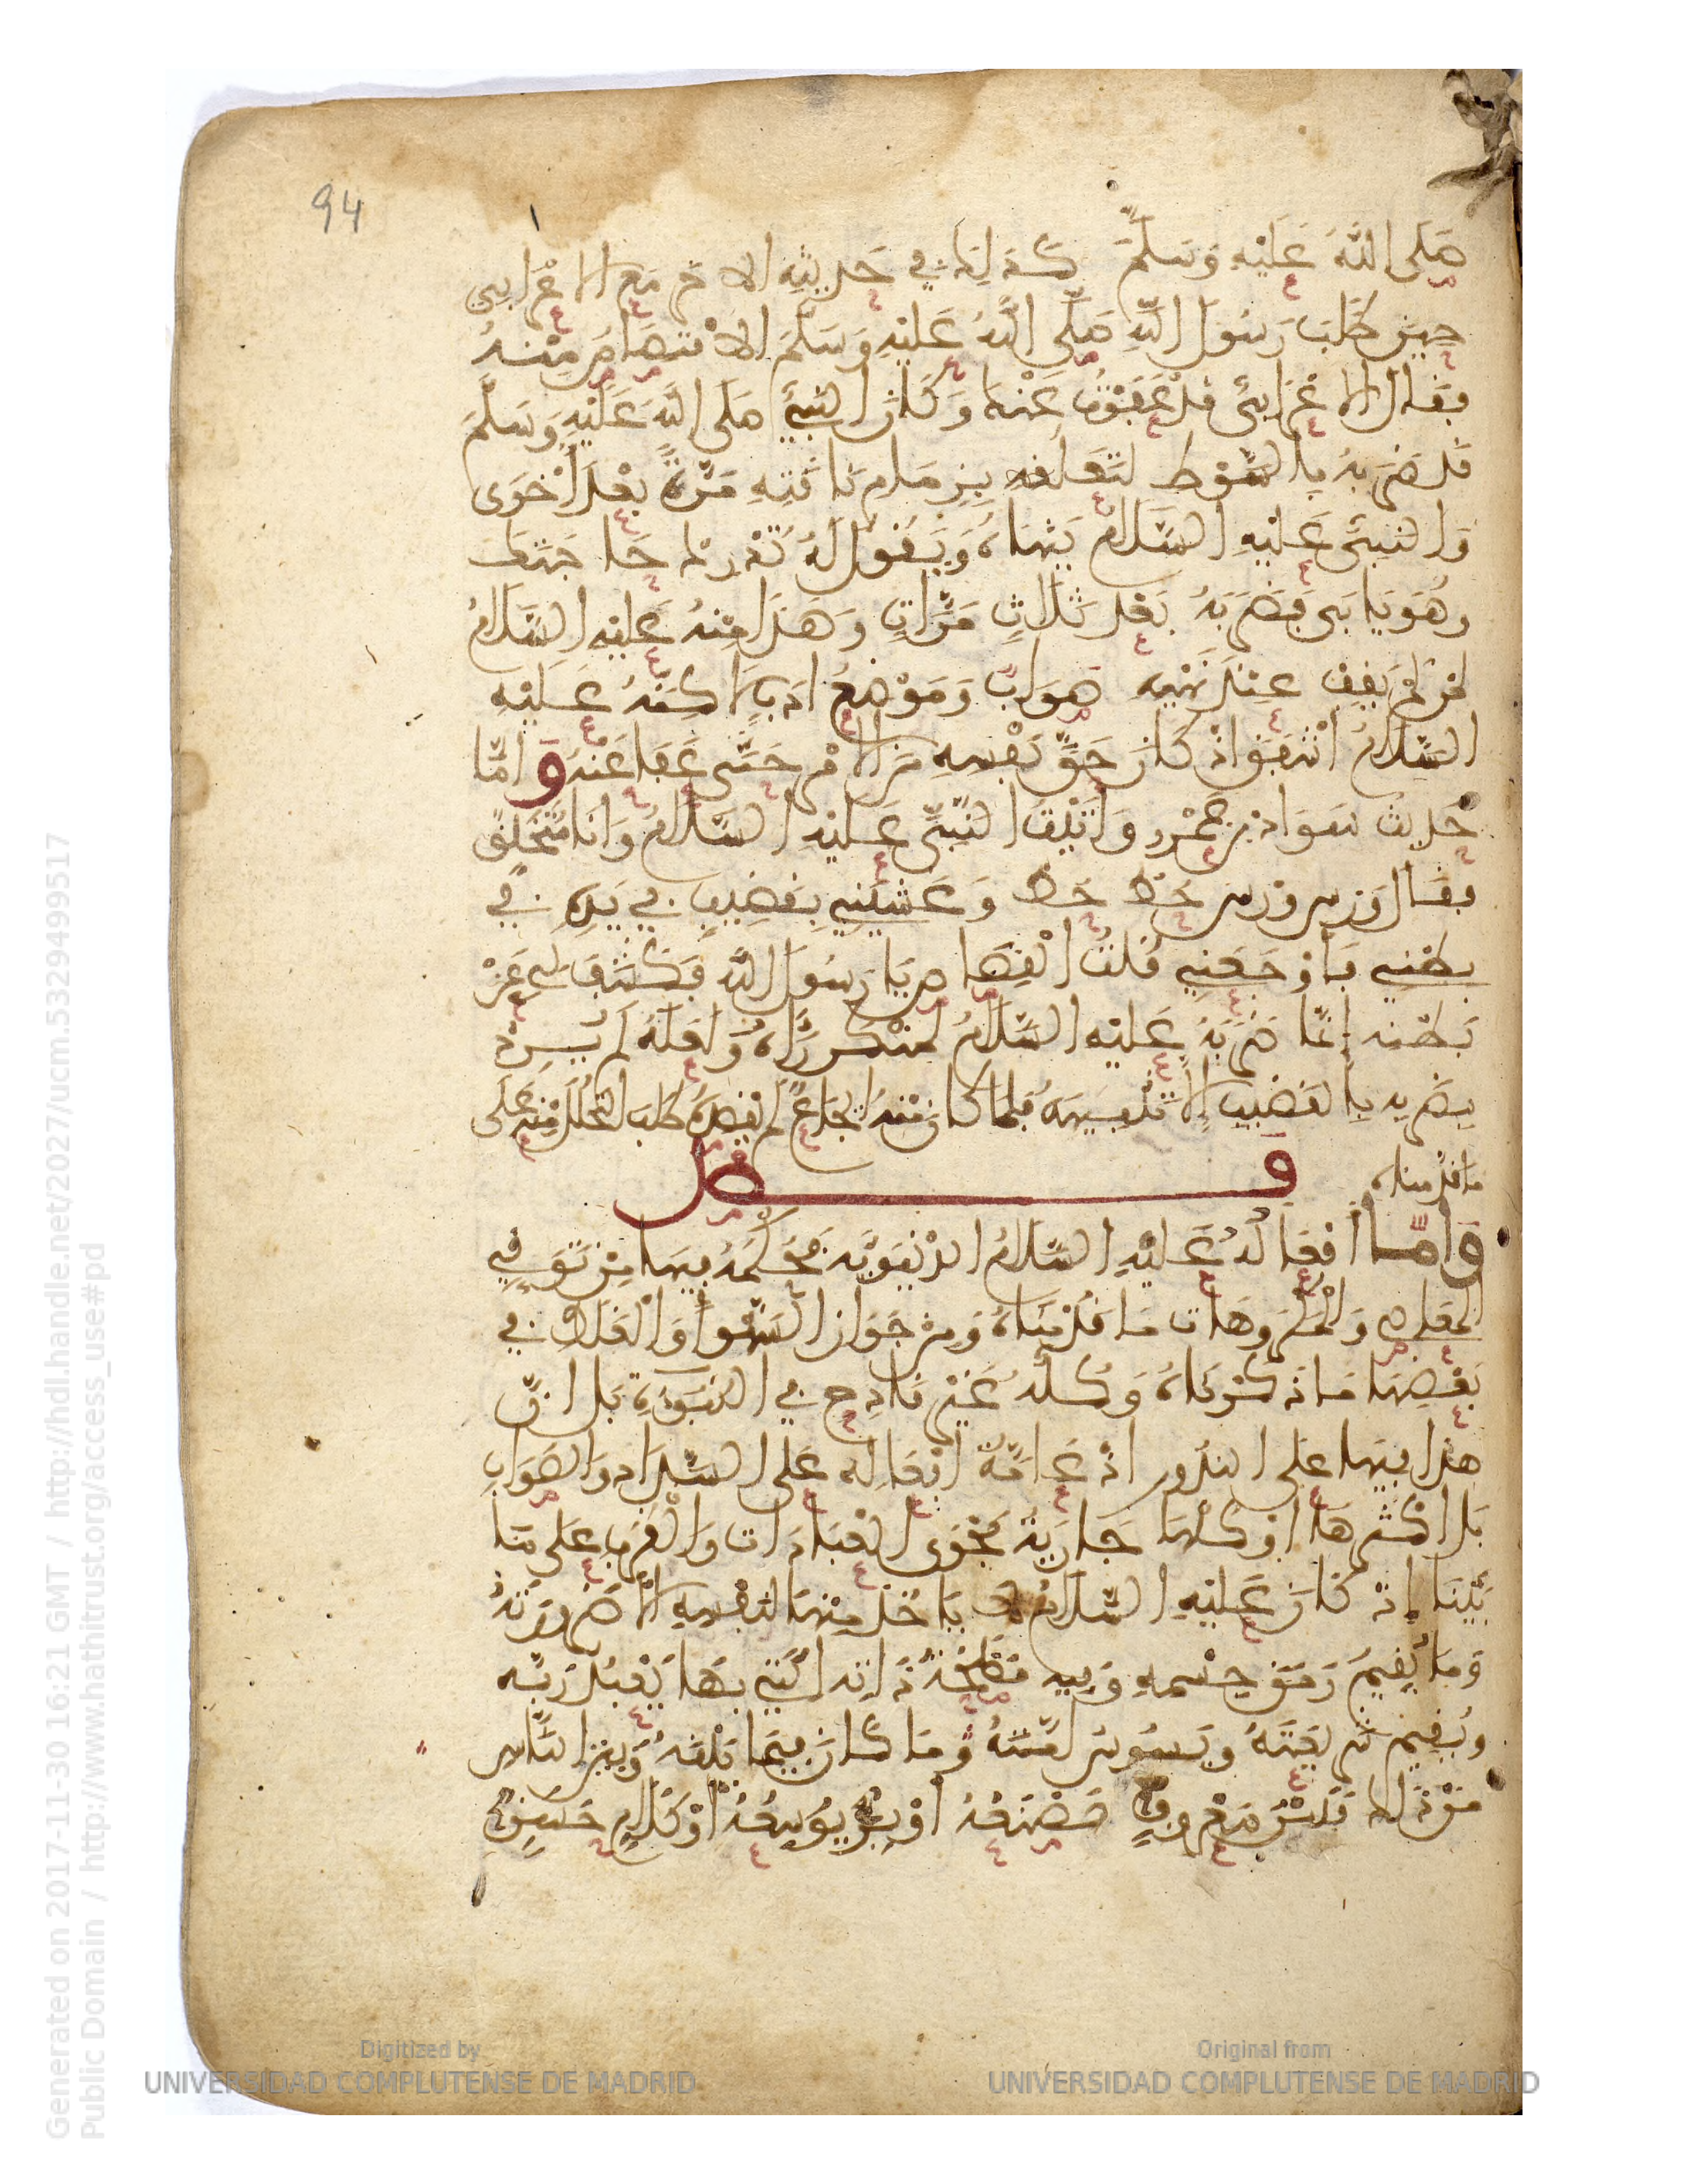 94
صَلى اللهُ عَلَيْهِ وَسَلَّمَ كَذلِكَ في حَدِيثِهِ الاخر مَعَ الاعْرَابِي
حِينَ طَلَبَ رَسُولَ اللهِ صَلَّى اللهُ عَلَيْهِ وَسَلَّمَ الاقْتِصَاصَ مِنْهُ
فقال الاعْرَابيُّ قَدْ عَفَوْتُ عَنْكَ وَكَانَ النبيُّ صَلى اللهُ عَلَيْهِ وَسَلَّمَ
قَد ضَرَبَهُ بِالسَّوْطِ لِتَعَلُّقِهِ بِزِمَامِ نَاقَتِهِ مَرَّةً بَعْدَ أُخْرَى
وَالنبيُّ عَلَيْهِ السَّلَامُ يَنْهَاهُ وَيَقُولُ لَهُ تُدْرِكُ حَاجَتَكَ
وهُوَ يَابَى فَضَرَبَهُ بَعْدَ ثَلَاثِ مَرَّاتٍ وَهَذَا مِنْهُ عَلَيْهِ السَّلَامُ
لمن لَمْ يَقِفْ عِنْدَ نَهْيِهِ صَوَابٌ وَمَوْضِعُ ادَبٍ لاكِنَّهُ عَلَيْهِ
السَّلَامُ اشْفَقَ اذْ كَانَ حَقَّ نَفْسِهِ مِنَ الامْرِ حَتَّى عَفَا عَنْهُ وَامَّا
حَدِيثُ سَوَادِ بْنِ عَمْرٍو وَأَتَيْتُ النَّبِيَّ عَلَيْهِ السَّلَامُ وَانَا مُتَخَلِّقٌ
فقال وَرس وَرس حَطْ حَطْ وَغَشِيَنِي بِقَضِيبٍ فِي يَدِهِ فِي
بَطْنِي فَأوْجَعَنِي قُلْتُ الْقِصَاصَ يَا رَسُولَ اللهِ فَكَشَفَ لِي عَنْ
بَطْنِهِ إنَّمَا ضَرَبَهُ عَلَيْهِ السَّلَامُ لِمُنْكَرٍ رَآهُ وَلَعَلَّهُ لَمْ يُرِدْ
بِضَرْبِهِ بِالقَضِيبِ الا تَنْبِيهَهُ فَلَمَّا كَانَ مِنْهُ ايْجَاعٌ لَمْ يَقْصِدْهُ طَلَبَ التَّحَلُّلَ مِنْهُ عَلَى
مَا قَدَّمْنَاهُ
فصل
وَامَّا أفْعَالُهُ عَلَيْهِ السَّلَامُ الدُّنْيَوِيَّه فَحُكْمُهُ فِيهَا مِنْ تَوَقِّي
المَعَاصِي وَالْمَكْرُوهَاتِ مَا قَدَّمْنَاهُ وَمِنْ جَوَازِ السَّهْوِ وَالْغَلَطِ فِي
بَعْضِهَا مَا ذَكَرْنَاهُ وَكُلُّهُ غَيْرُ قَادِحٍ فِي النُّبُوَّةِ بَل انَّ
هذا فِيهَا عَلَى النُّدُورِ اذْ عَامَّةُ افْعَالِهِ عَلَى السَّدَادِ وَالصَّوَابِ
بَل اكْثَرُهَا اوْ كُلُّهَا جَارِيَةٌ مَجْرَى الْعِبَادَاتِ وَالْقُرَبِ عَلَى مَا
بَيَّنَّا إذْ كَانَ عَلَيْهِ السَّلَامُ لا يَاخُذُ مِنْهَا لِنَفْسِهِ الا ضَرُورَتَهُ
وَمَا يُقِيمُ رَمَقَ جِسْمِهِ وَفِيهِ مَصْلَحَةُ ذَاتِهِ الَّتِي بِهَا يَعْبُدُ رَبَّه
ويُقِيمُ شَرِيعَتَهُ ويَسُوسُ امَّتَهُ وَمَا كَانَ فِيمَا بَيْنَهُ وَبَيْنَ النَّاسِ
مِنْ ذَلِكَ فَبَيْنَ مَعْرُوفٍ يَصْنَعُهُ اوْ بِرٍّ يُوَسِّعُهُ اوْ كَلَامٍ حَسَنٍ